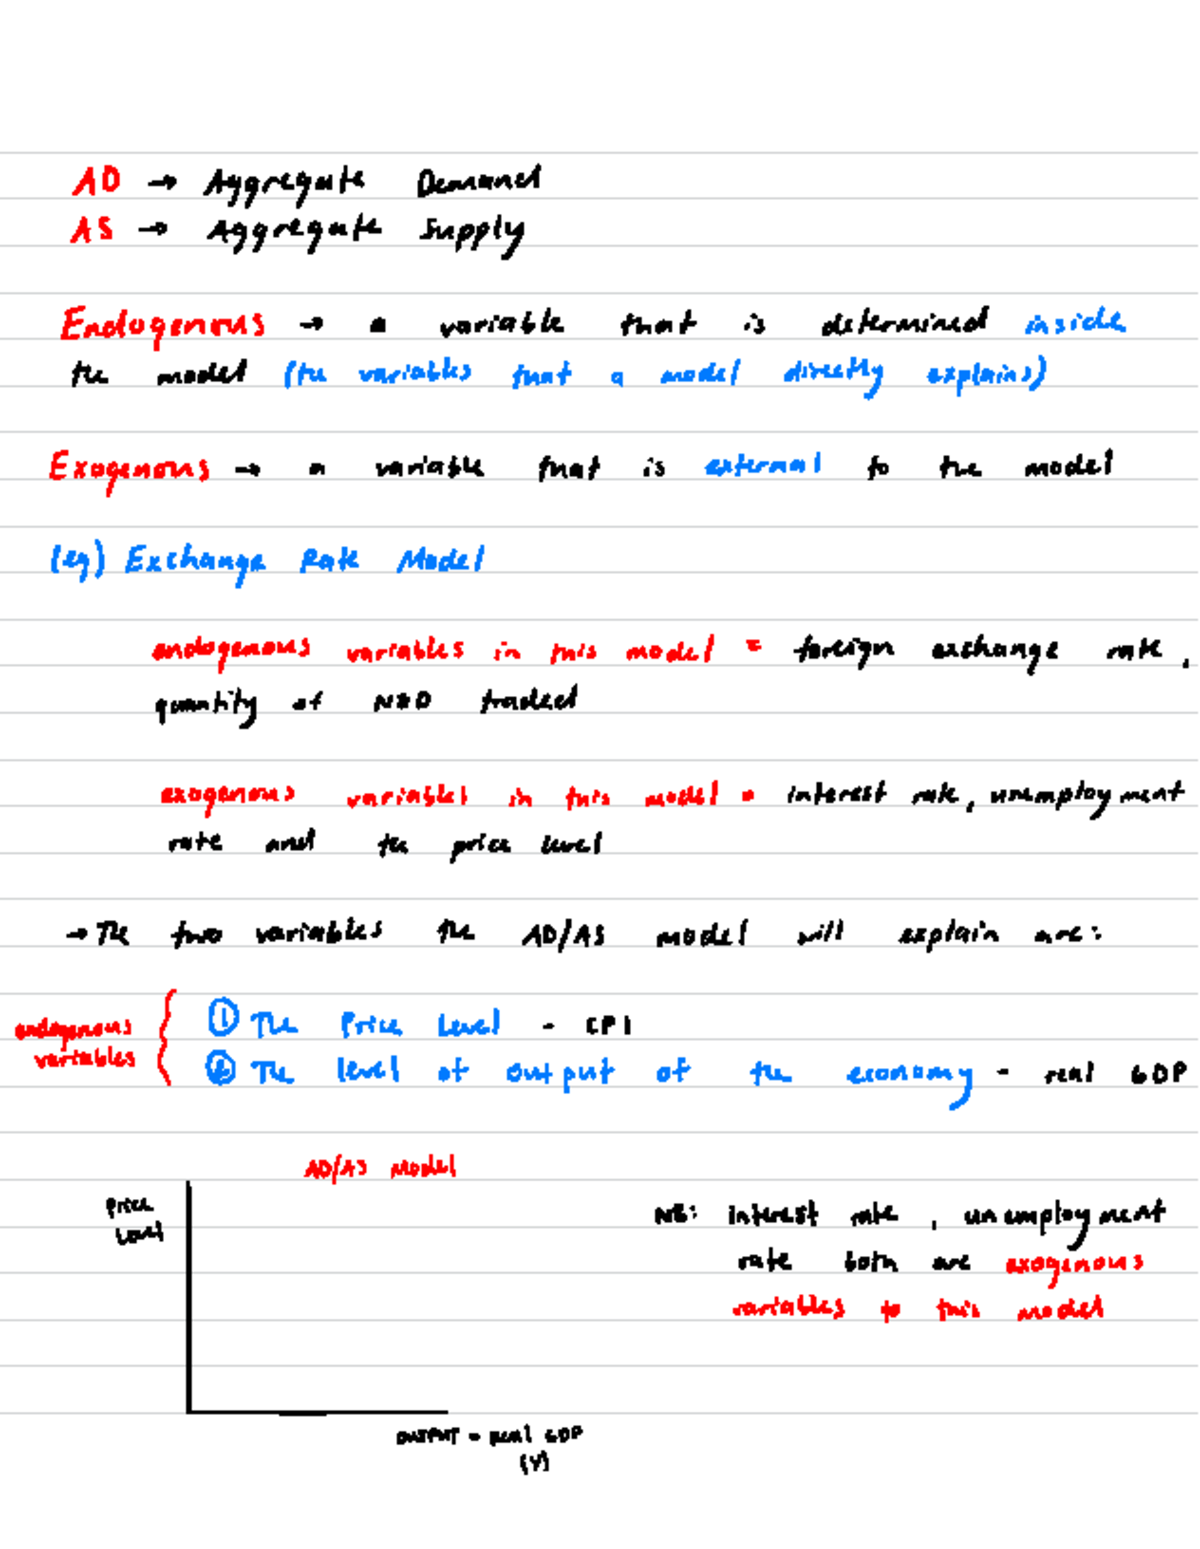 AD → Aggregate Demand
AS → Aggregate Supply
Endogenous → a variable that is determined inside
the model (the variables that a model directly explains)
Exogenous → a variable that is external to the model
(eg) Exchange Rate Model
endogenous variables in this model = foreign exchange rate,
quantity of NZD traded
exogenous variables in this model = interest rate, unemployment
rate and the price level
→ The two variables the AD/AS model will explain are:
endogenous variables
① The Price Level - CPI
② The level of output of the economy - real GDP
AD/AS Model
Price
Level
NB: interest rate, unemployment
rate both are exogenous
variables to this model
OUTPUT = Real GDP
(Y)